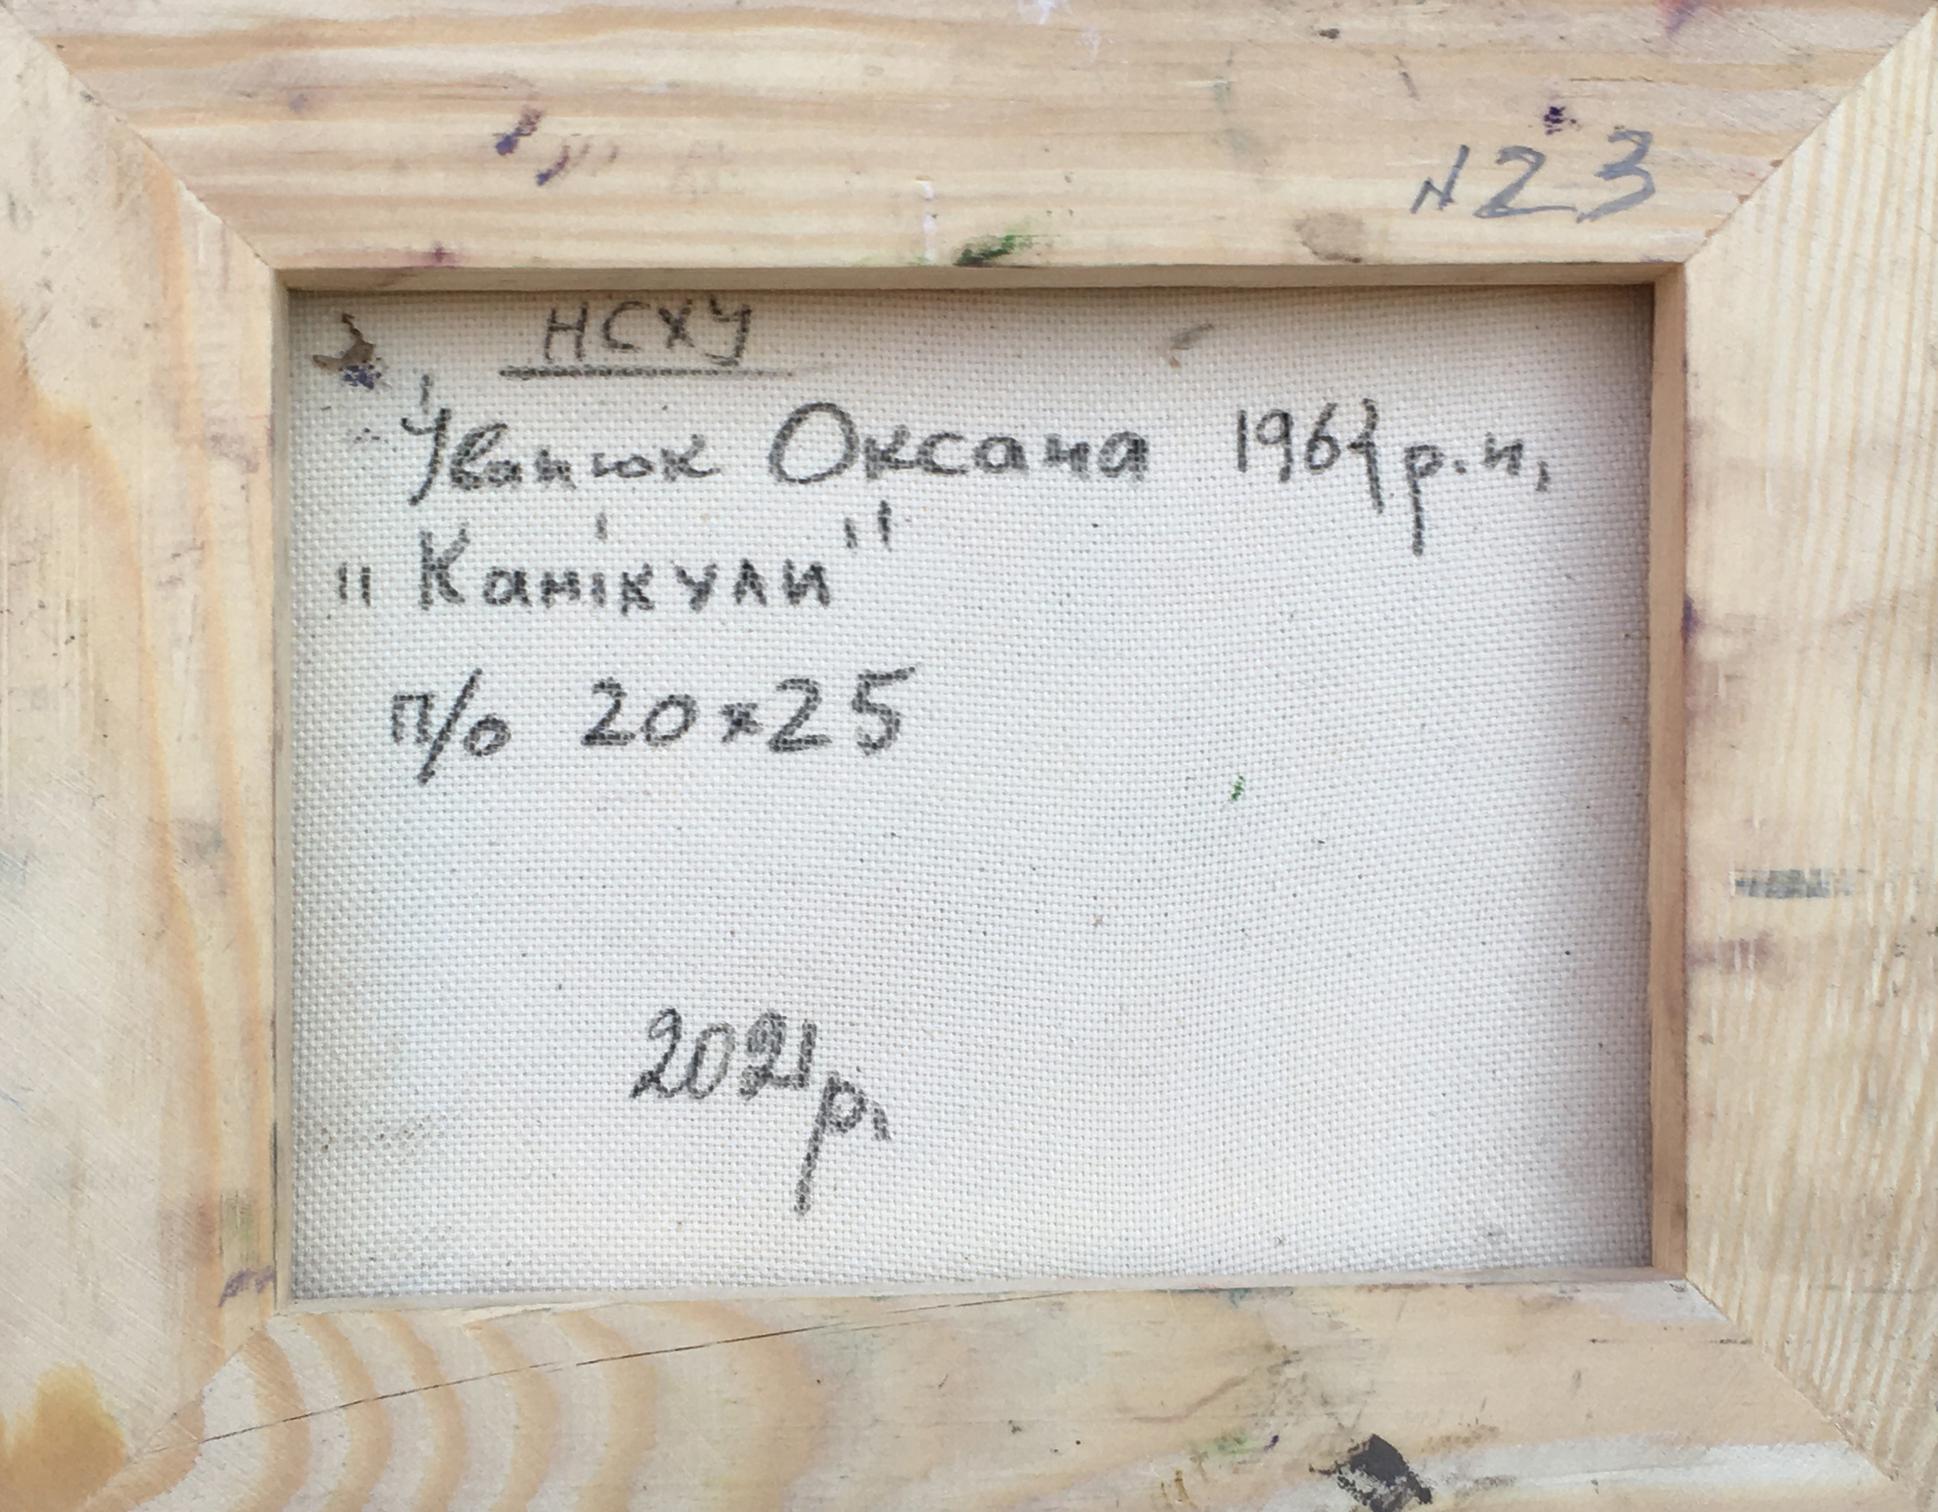 N23
НСХУ
Іванюк Оксана р.н,
"Канікули"
п/о 20×25
2021р,